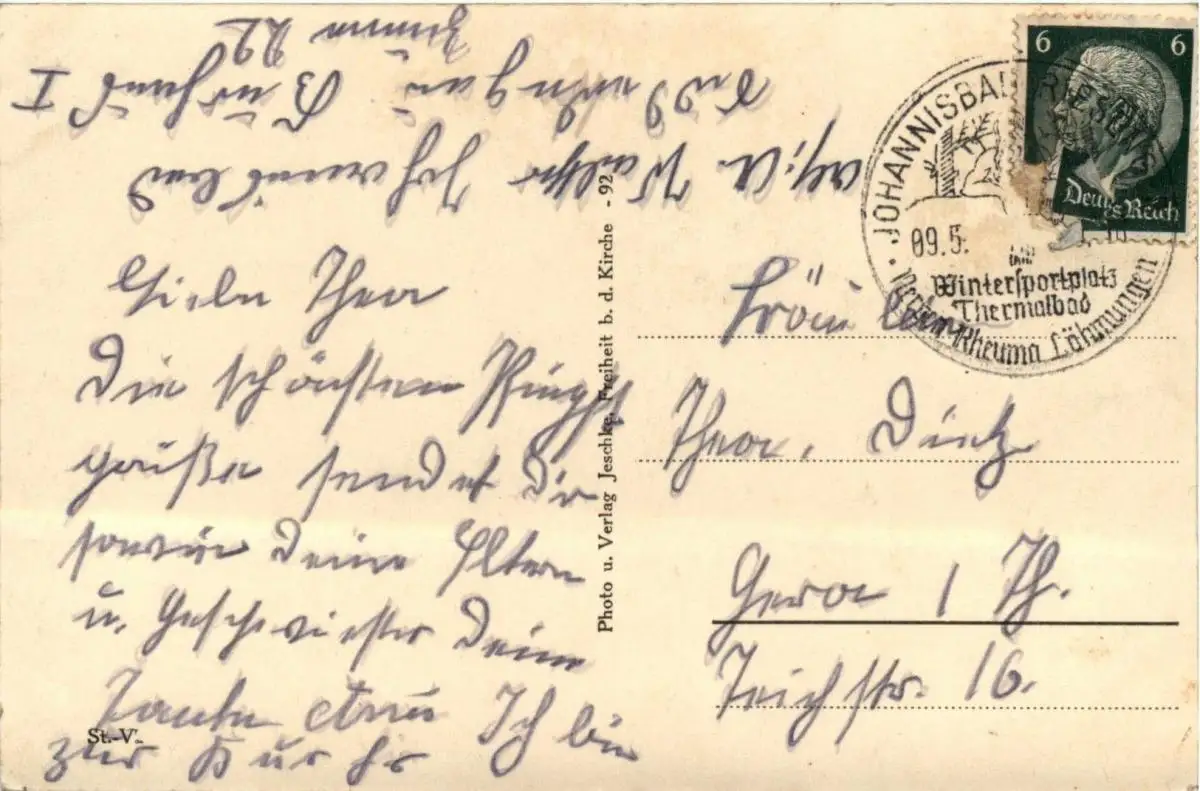 Liebe Thea
Die schönsten Pfingst
grüße sendet Dir
sowie Deine Eltern
u. Geschwister Deine
Tante Ich bin
zur Kur
Walter Johannisbad
Sudetengau Kurhaus I
Zimmer 22
Photo u. Verlag Jeschke, Freiheit b. d. Kirche - 92
St.-V.
6 6
Deutsches Reich
JOHANNISBAD
09.5.
Wintersportplatz
Thermalbad
Rheuma Lähmungen
Fräulein
Thea, Dietz
Gera / Th.
Teichstr. 16.